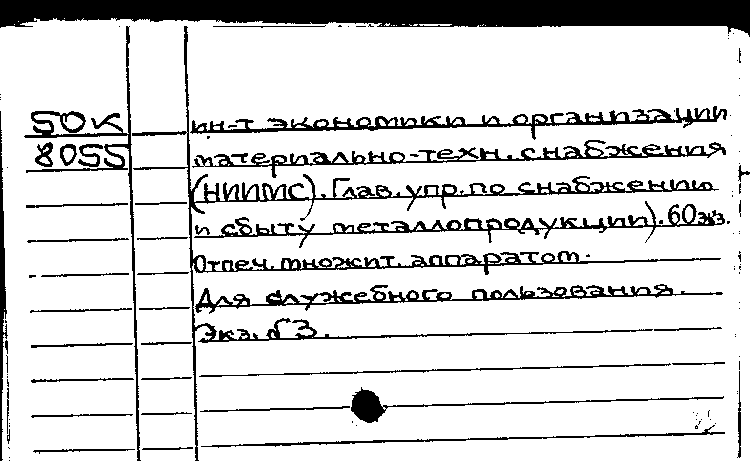 50К ин-т экономики и организации
8055 материально-техн. снабжения
(НИИМС). Глав. упр. по снабжению
и сбыту металлопродукции). 60 экз.
Отпеч. множит. аппаратом.
Для служебного пользования.
Экз. №3.